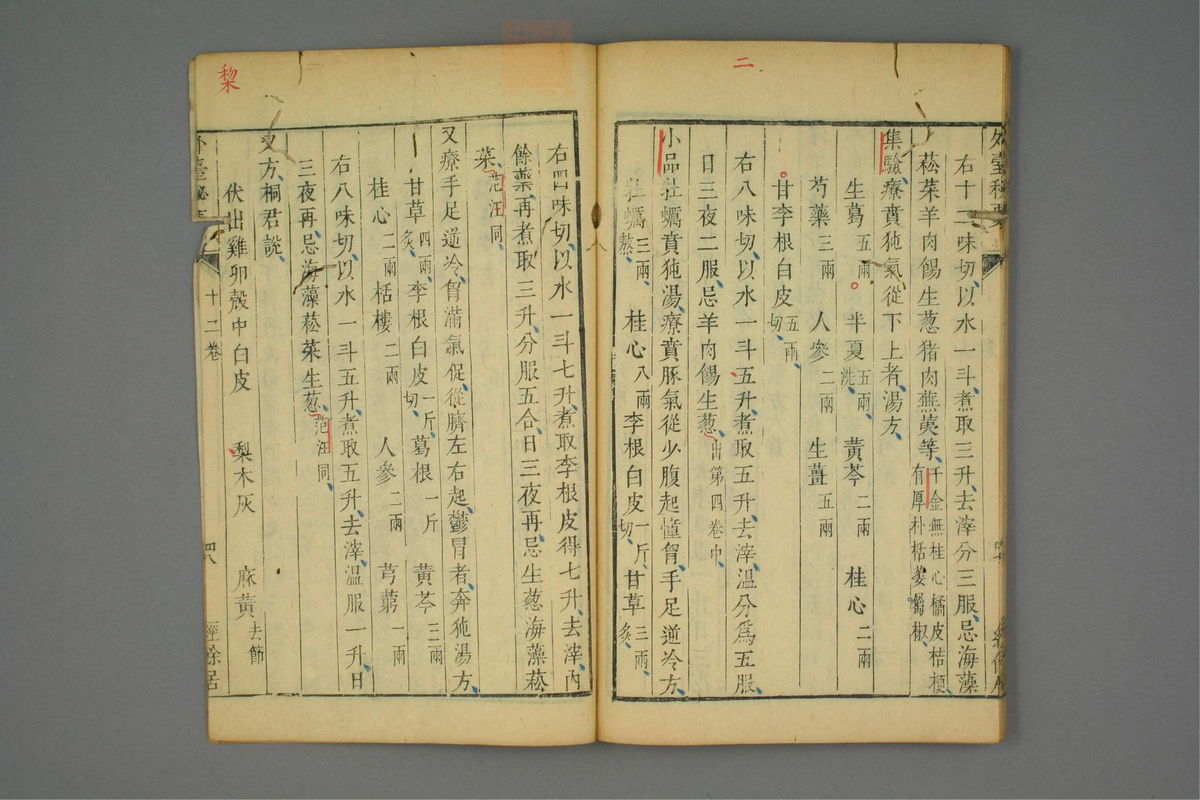 二
右十二味切以水一斗煮取三升去滓分三服忌海藻
菘菜羊肉餳生葱猪肉蕪荑等千金無桂心橘皮桔梗有厚朴栝蔞蜀椒
集驗療賁㹠氣從下上者湯方
生葛五兩 半夏五兩洗 黃芩二兩 桂心二兩
芍藥三兩 人參二兩 生薑五兩
甘李根白皮五兩切
右八味切以水一斗五升煮取五升去滓温分爲五服
日三夜二服忌羊肉餳生葱出第四卷中
小品牡蠣賁㹠湯療賁豚氣從少腹起憧胷手足逆冷方
牡蠣三兩熬 桂心八兩 李根白皮一斤切 甘草三兩炙
梨
右四味切以水一斗七升煮取李根皮得七升去滓内
餘藥再煮取三升分服五合日三夜再忌生葱海藻菘
菜范汪同
又療手足逆冷胷滿氣促從臍左右起鬱冒者奔㹠湯方
甘草四兩炙 李根白皮一斤切 葛根一斤 黃芩三兩
桂心二兩 栝樓二兩 人參二兩 芎藭一兩
右八味切以水一斗五升煮取五升去滓温服一升日
三夜再忌海藻菘菜生葱范汪同
又方桐君說
伏出雞卵殼中白皮 梨木灰 麻黃去節
外臺祕要 十二卷 四八 經餘居